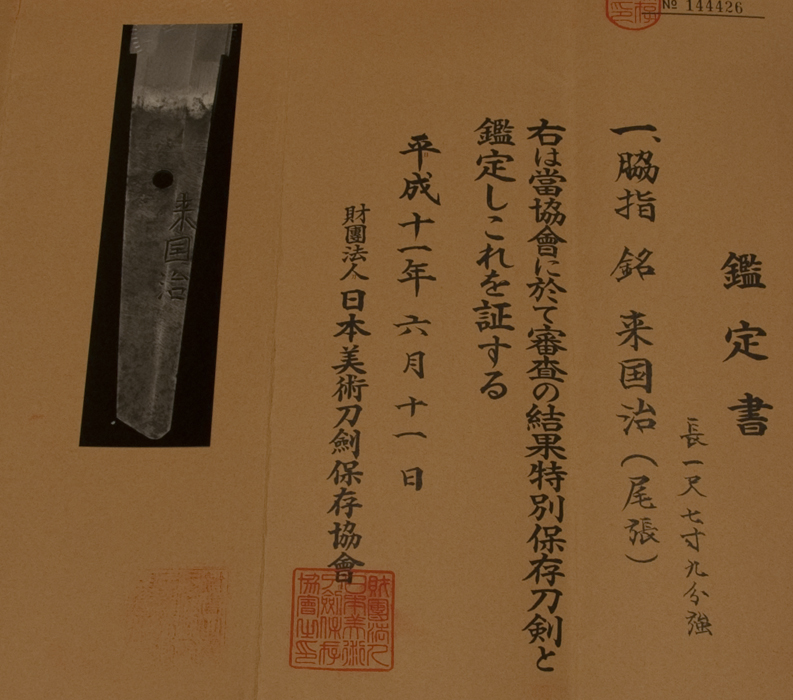 № 144426
鑑定書
長一尺七寸九分強
一、脇指 銘 来国治(尾張)
右は當協會に於て審査の結果特別保存刀剣と
鑑定しこれを証する
平成十一年六月十一日
財團法人日本美術刀劍保存協會
財團法人
日本美術
刀劍保存
協會之印
来国治